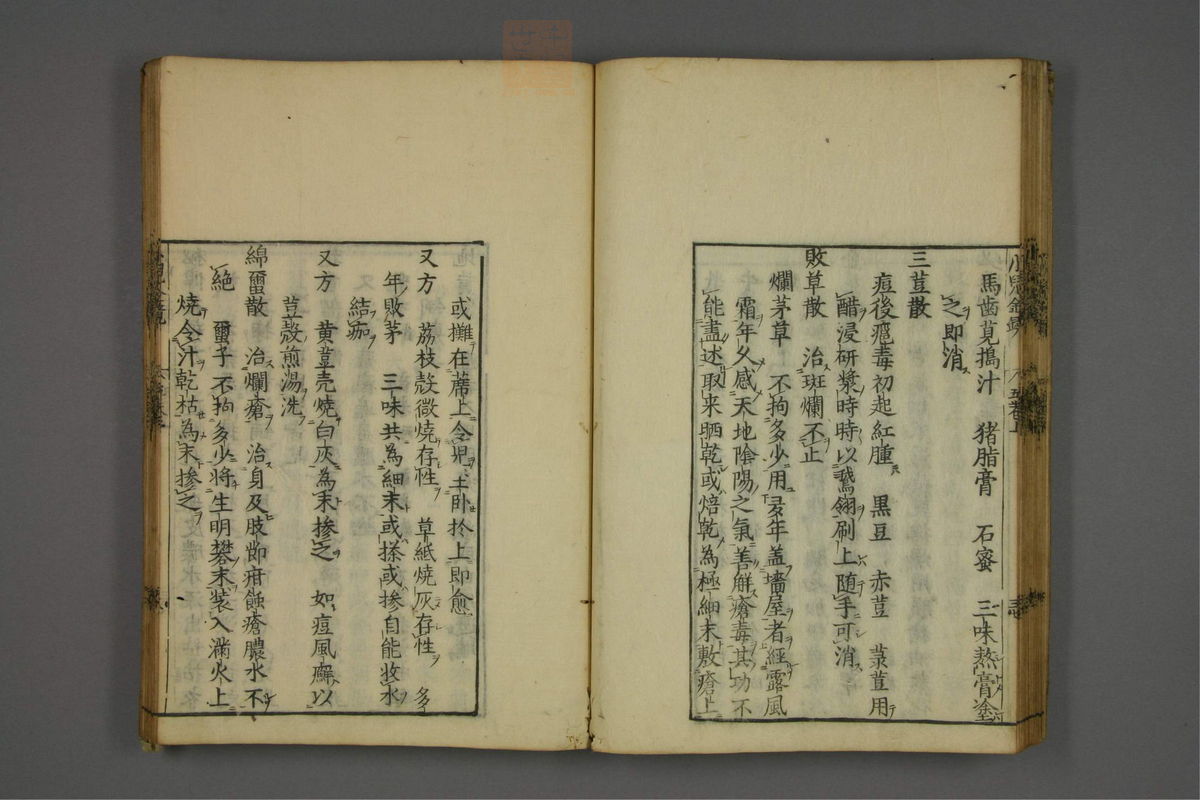 馬齒莧搗汁　猪脂膏　石蜜　三味熬膏塗
之即消
三荳散
痘後癰毒初起紅腫　黒豆　赤荳　菉荳用
醋浸研漿時時以鵞翎刷上随手可消
敗草散　治斑爛不止
爛茅草　不拘多少用多年盖墻屋者經露風
霜年久感天地陰陽之氣善觧瘡毒其功不
能盡述取来晒乾或焙乾為極細末敷瘡上
或攤在蓆上令児主卧於上即愈
又方　茘枝殻微焼存性　草紙焼灰存性　多
年敗茅　三味共為細末或搽或掺自能收水
結痂
又方　黄荳壳焼白灰為末掺之　如痘風癬以
荳殻煎湯洗
綿蠒散　治爛瘡　治身及肢節疳蝕瘡膿水不
絶　蠒子不拘多少將生明礬末装入滿火上
焼令汁乾枯為末掺之